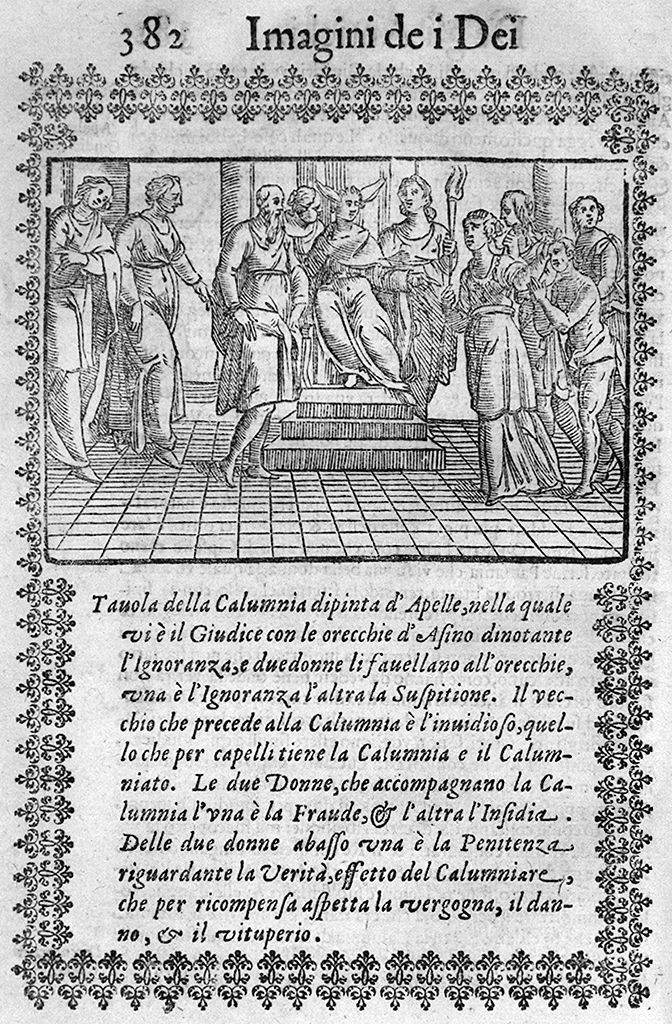 382 Imagini de i Dei
Tauola della Calumnia dipinta d'Apelle, nella quale
vi è il Giudice con le orecchie d'Asino dinotante
l'Ignoranza, e due donne li fauellano all'orecchie,
vna è l'Ignoranza l'altra la Suspitione. Il vec-
chio che precede alla Calumnia è l'inuidioso, quel-
lo che per capelli tiene la Calumnia e il Calum-
niato. Le due Donne, che accompagnano la Ca-
lumnia l'vna è la Fraude, & l'altra l'Insidia.
Delle due donne abasso vna è la Penitenza
riguardante la Verità, effetto del Calumniare,
che per ricompensa aspetta la vergogna, il dan-
no, & il vituperio.